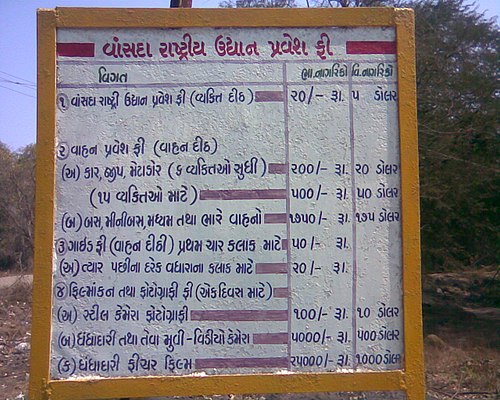 વાંસદા રાષ્ટ્રીય ઉદ્યાન પ્રવેશ ફી
વિગત ભા.નાગરિકો વિ.નાગરિકો
૧ વાંસદા રાષ્ટ્રી ઉદ્યાન પ્રવેશ ફી (વ્યકિત દીઠ) ૨૦/- રૂા. ૫ ડોલર
૨ વાહન પ્રવેશ ફી (વાહન દીઠ)
(અ) કાર, જીપ, મેટાડોર (૬ વ્યકિતઓ સુધી) ૨૦૦/- રૂા. ૨૦ ડોલર
(૧૫ વ્યકિતઓ માટે) ૫૦૦/- રૂા. ૫૦ ડોલર
(બ) બસ, મીનીબસ, મધ્યમ તથા ભારે વાહનો ૧૭૫૦/- રૂા. ૧૭૫ ડોલર
૩ ગાઈડ ફી (વાહન દીઠી) પ્રથમ ચાર કલાક માટે ૫૦ /- રૂા.
(અ) ત્યાર પછીના દરેક વધારાના કલાક માટે ૨૦ /- રૂા.
૪ ફિલ્માંકન તથા ફોટોગ્રાફી ફી (એકદિવસ માટે)
(અ) સ્ટીલ કેમેરા ફોટોગ્રાફી ૧૦૦/- રૂા. ૧૦ ડોલર
(બ) ધંધાદારી તથા તેવા મુવી - વિડીયો કેમેરા ૫૦૦૦/- રૂા. ૫૦૦ ડોલર
(ક) ધંધાદારી ફીચર ફિલ્મ ૨૫૦૦૦/- રૂા. ૧૦૦૦ ડોલર